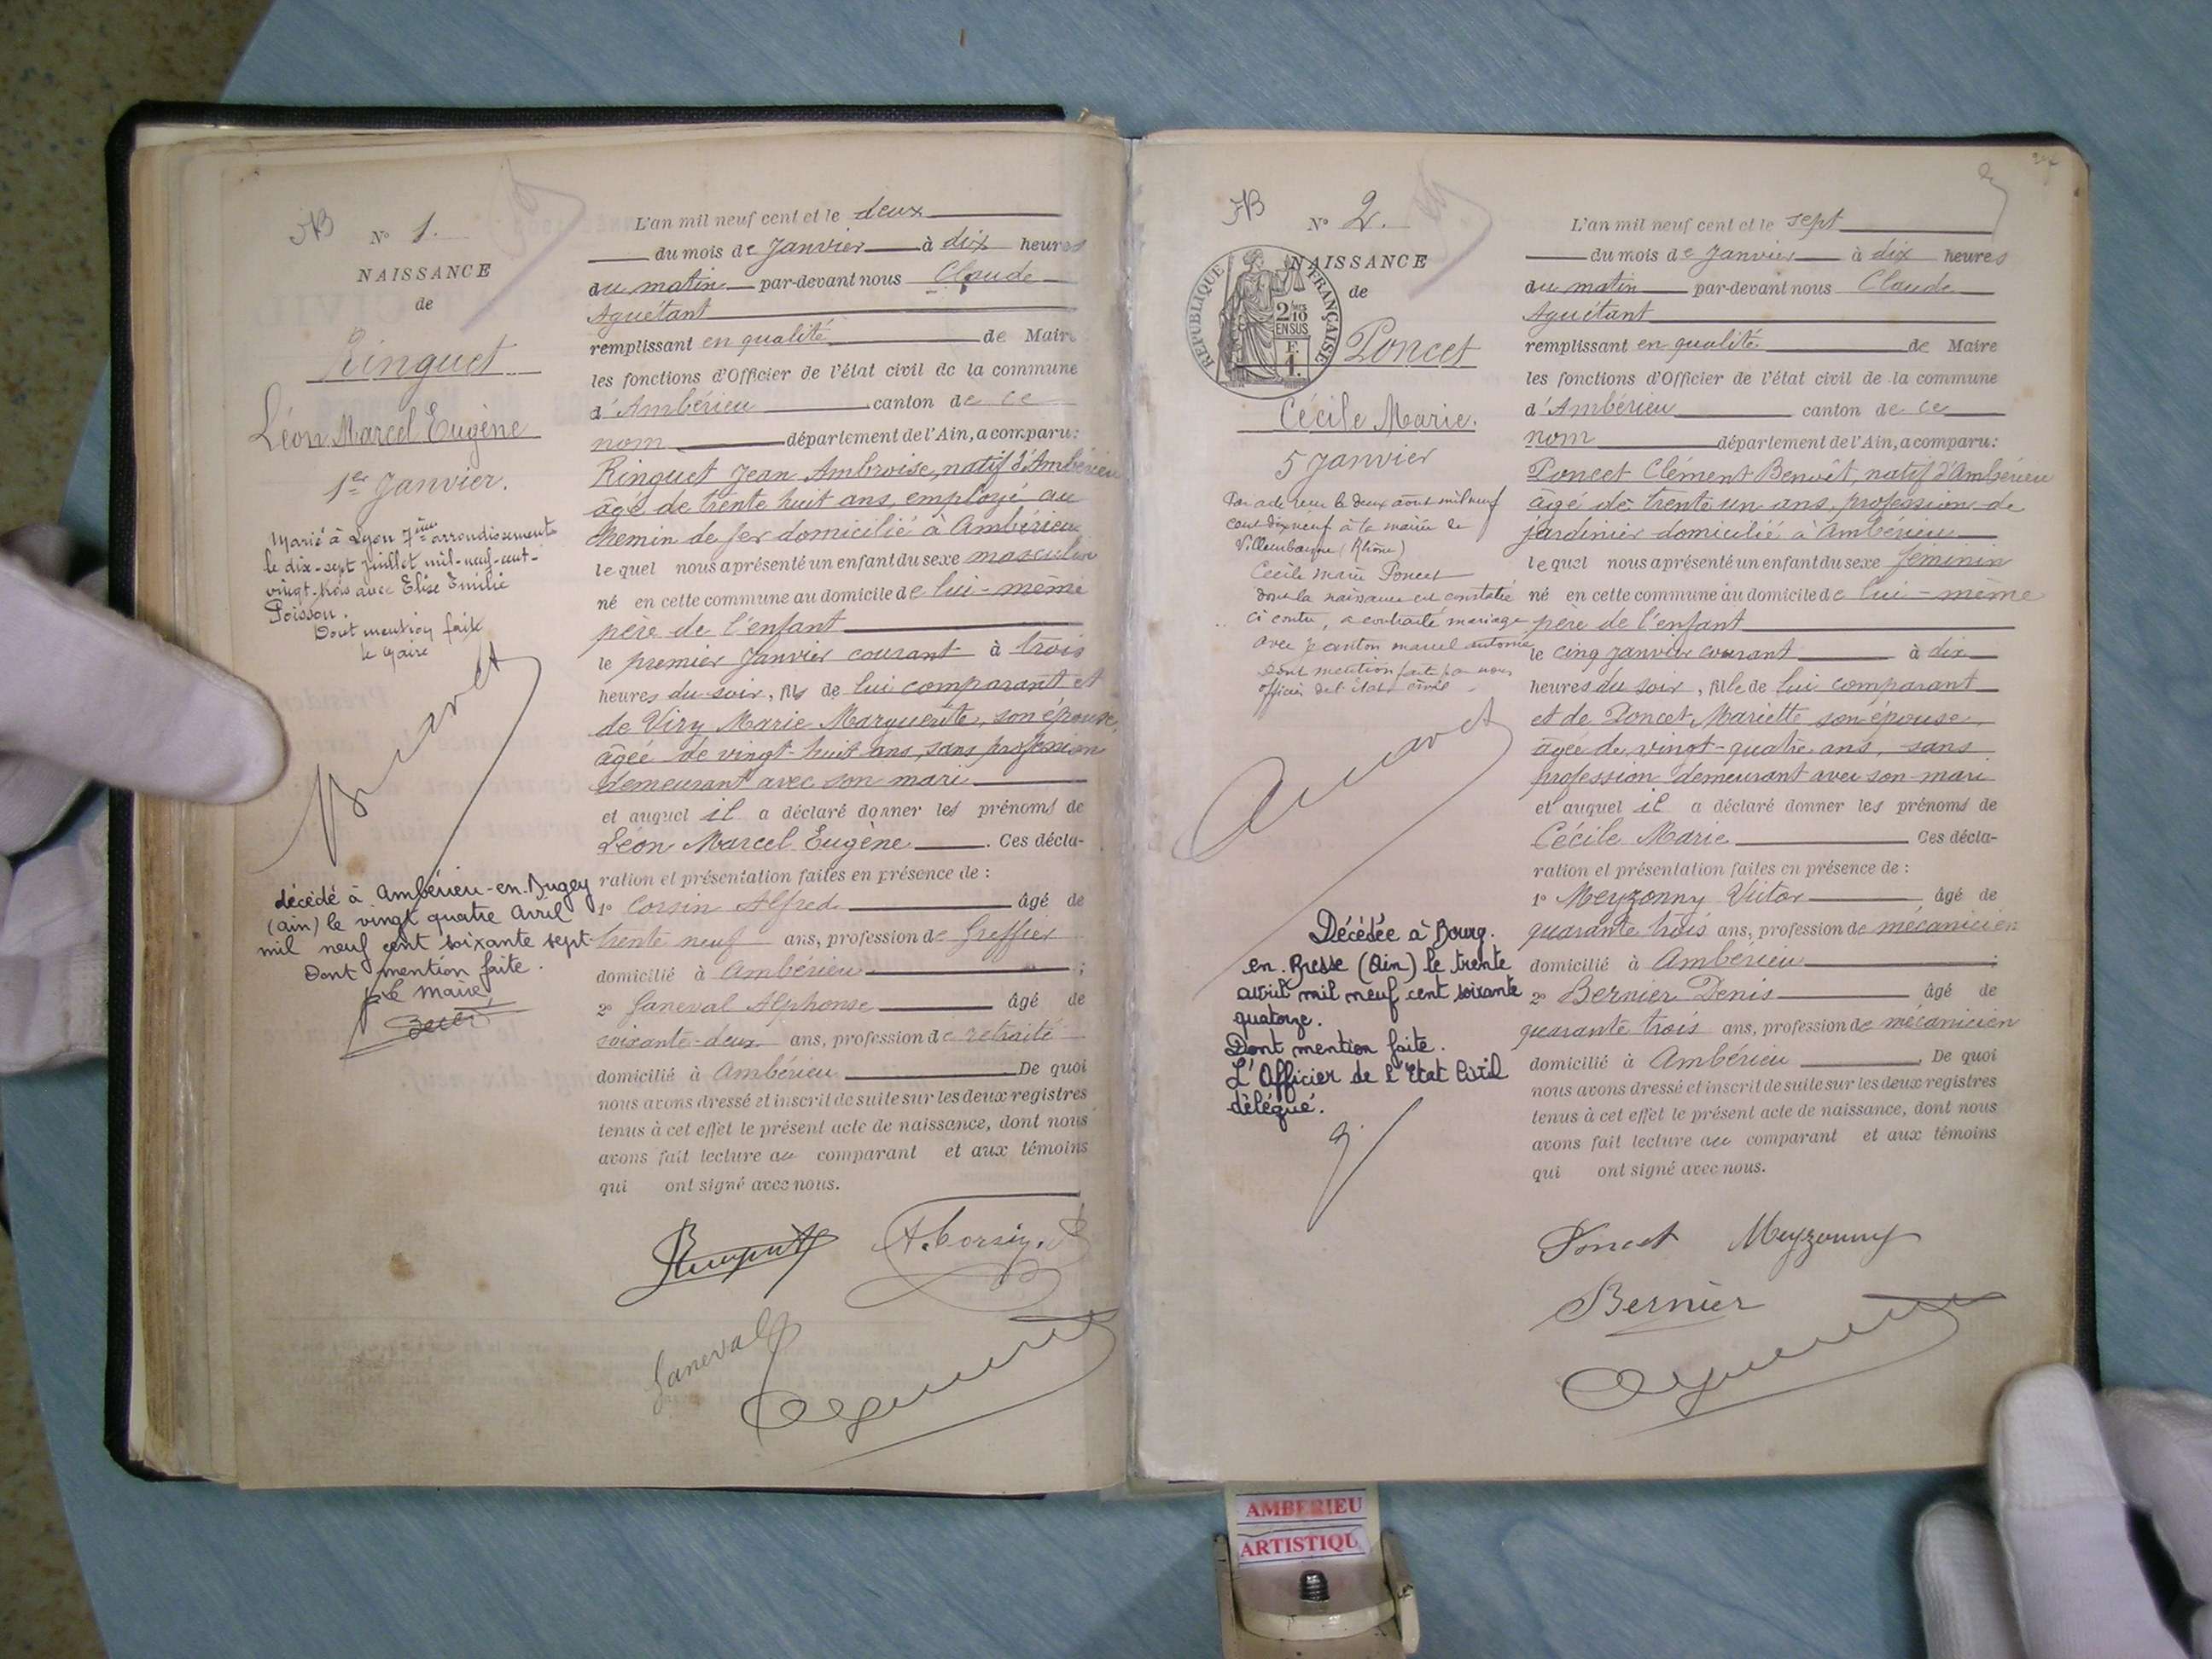 N° 1.
NAISSANCE
de
Ringuet
Léon Marcel Eugène
1er Janvier.
Marié à Lyon 7ème arrondissement
le dix-sept juillet mil-neuf-cent-
vingt-trois avec Elise Emilie
Poisson.
Dont mention faite
le Maire
décédé à Ambérieu-en-Bugey
(Ain) le vingt quatre Avril
mil neuf cent soixante sept
Dont mention faite.
Le Maire,
L'an mil neuf cent et le deux
du mois de Janvier à dix heures
du matin par-devant nous Claude
Aguétant
remplissant en qualité de Maire
les fonctions d'Officier de l'état civil de la commune
d'Ambérieu canton de ce
nom département de l'Ain, a comparu:
Ringuet Jean Ambroise, natif d'Ambérieu
âgé de trente huit ans, employé au
chemin de fer domicilié à Ambérieu
lequel nous a présenté un enfant du sexe masculin
né en cette commune au domicile de lui-même
père de l'enfant
le premier Janvier courant à trois
heures du soir, fils de lui comparant et
de Viry Marie Marguerite, son épouse,
âgée de vingt-huit ans, sans profession
demeurant avec son mari
et auquel il a déclaré donner les prénoms de
Léon Marcel Eugène. Ces décla-
ration et présentation faites en présence de :
1° Corsin Alfred âgé de
trente neuf ans, profession de Greffier
domicilié à Ambérieu ;
2° Janeval Alphonse âgé de
soixante-deux ans, profession de retraité
domicilié à Ambérieu De quoi
nous avons dressé et inscrit de suite sur les deux registres
tenus à cet effet le présent acte de naissance, dont nous
avons fait lecture au comparant et aux témoins
qui ont signé avec nous.
A. Corsin
Janeval
N° 2.
NAISSANCE
de
RÉPUBLIQUE FRANÇAISE
2/10
EN SUS
F.
1.
Poncet
Cécile Marie.
5 Janvier
Par acte reçu le deux août mil neuf
cent dix neuf à la mairie de
Villeurbanne (Rhône)
Cécile Marie Poncet
dont la naissance est constatée
ci contre, a contracté mariage
avec marcel antoine
Dont mention faite par nous
officier de l'état civil
Décédée à Bourg.
en. Bresse (Ain) le trente
avril mil neuf cent soixante
quatorze.
Dont mention faite.
L'Officier de l'Etat Civil
délégué.
L'an mil neuf cent et le sept
du mois de Janvier à dix heures
du matin par-devant nous Claude
Aguétant
remplissant en qualité de Maire
les fonctions d'Officier de l'état civil de la commune
d'Ambérieu canton de ce
nom département de l'Ain, a comparu:
Poncet Clément Benoit, natif d'Ambérieu
âgé de trente un ans, profession de
jardinier domicilié à Ambérieu
lequel nous a présenté un enfant du sexe féminin
né en cette commune au domicile de lui-même
père de l'enfant
le cinq janvier courant à dix
heures du soir, fille de lui comparant
et de Poncet Mariette son épouse,
âgée de vingt-quatre ans, sans
profession demeurant avec son mari
et auquel il a déclaré donner les prénoms de
Cécile Marie Ces décla-
ration et présentation faites en présence de :
1° Meyzonny Victor âgé de
quarante trois ans, profession de mécanicien
domicilié à Ambérieu ;
2° Bernier Denis âgé de
quarante trois ans, profession de mécanicien
domicilié à Ambérieu. De quoi
nous avons dressé et inscrit de suite sur les deux registres
tenus à cet effet le présent acte de naissance, dont nous
avons fait lecture au comparant et aux témoins
qui ont signé avec nous.
Poncet Meyzonny
Bernier
AMBERIEU
ARTISTIQU